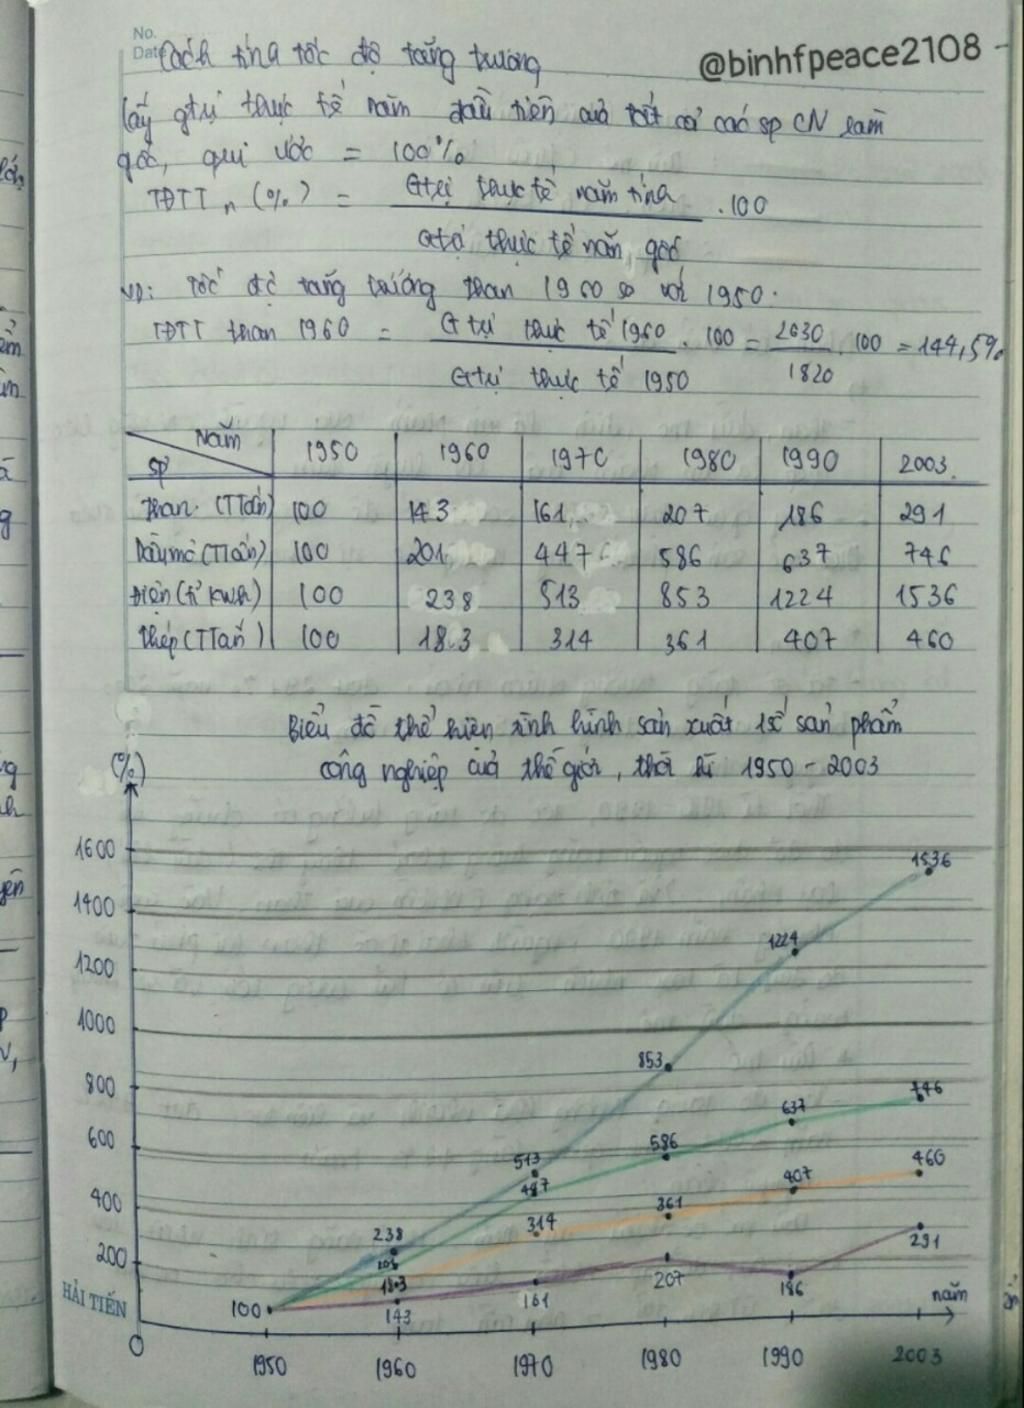 No.
Date
Cách tính tốc độ tăng trưởng
@binhfpeace2108
Lấy gtrị thực tế năm đầu tiên của tất cả các sp CN làm
gốc, qui ước = 100%
TĐTT n (%) = Gtrị thực tế năm tính / Gtrị thực tế năm gốc . 100
VD: Tốc độ tăng trưởng than 1960 so với 1950.
TĐTT than 1960 = Gtrị thực tế 1960 / Gtrị thực tế 1950 . 100 = 2630 / 1820 . 100 = 144,5%
Năm 1950 1960 1970 1980 1990 2003.
SP
Than (Ttấn) 100 143 161 207 186 291
Dầu mỏ (Ttấn) 100 201 447 586 637 746
Điện (tỉ kWh) 100 238 513 853 1224 1536
Thép (Ttấn) 100 183 314 361 407 460
Biểu đồ thể hiện tình hình sản xuất 1 số sản phẩm
(%) công nghiệp của thế giới, thời kì 1950 - 2003
1600
1536
1400
1224
1200
1000
853
800
746
637
600
586
513
460
447
407
400
361
314
238
201
200
183
291
207
186
161
143
100
HẢI TIẾN
năm
0
1950 1960 1970 1980 1990 2003